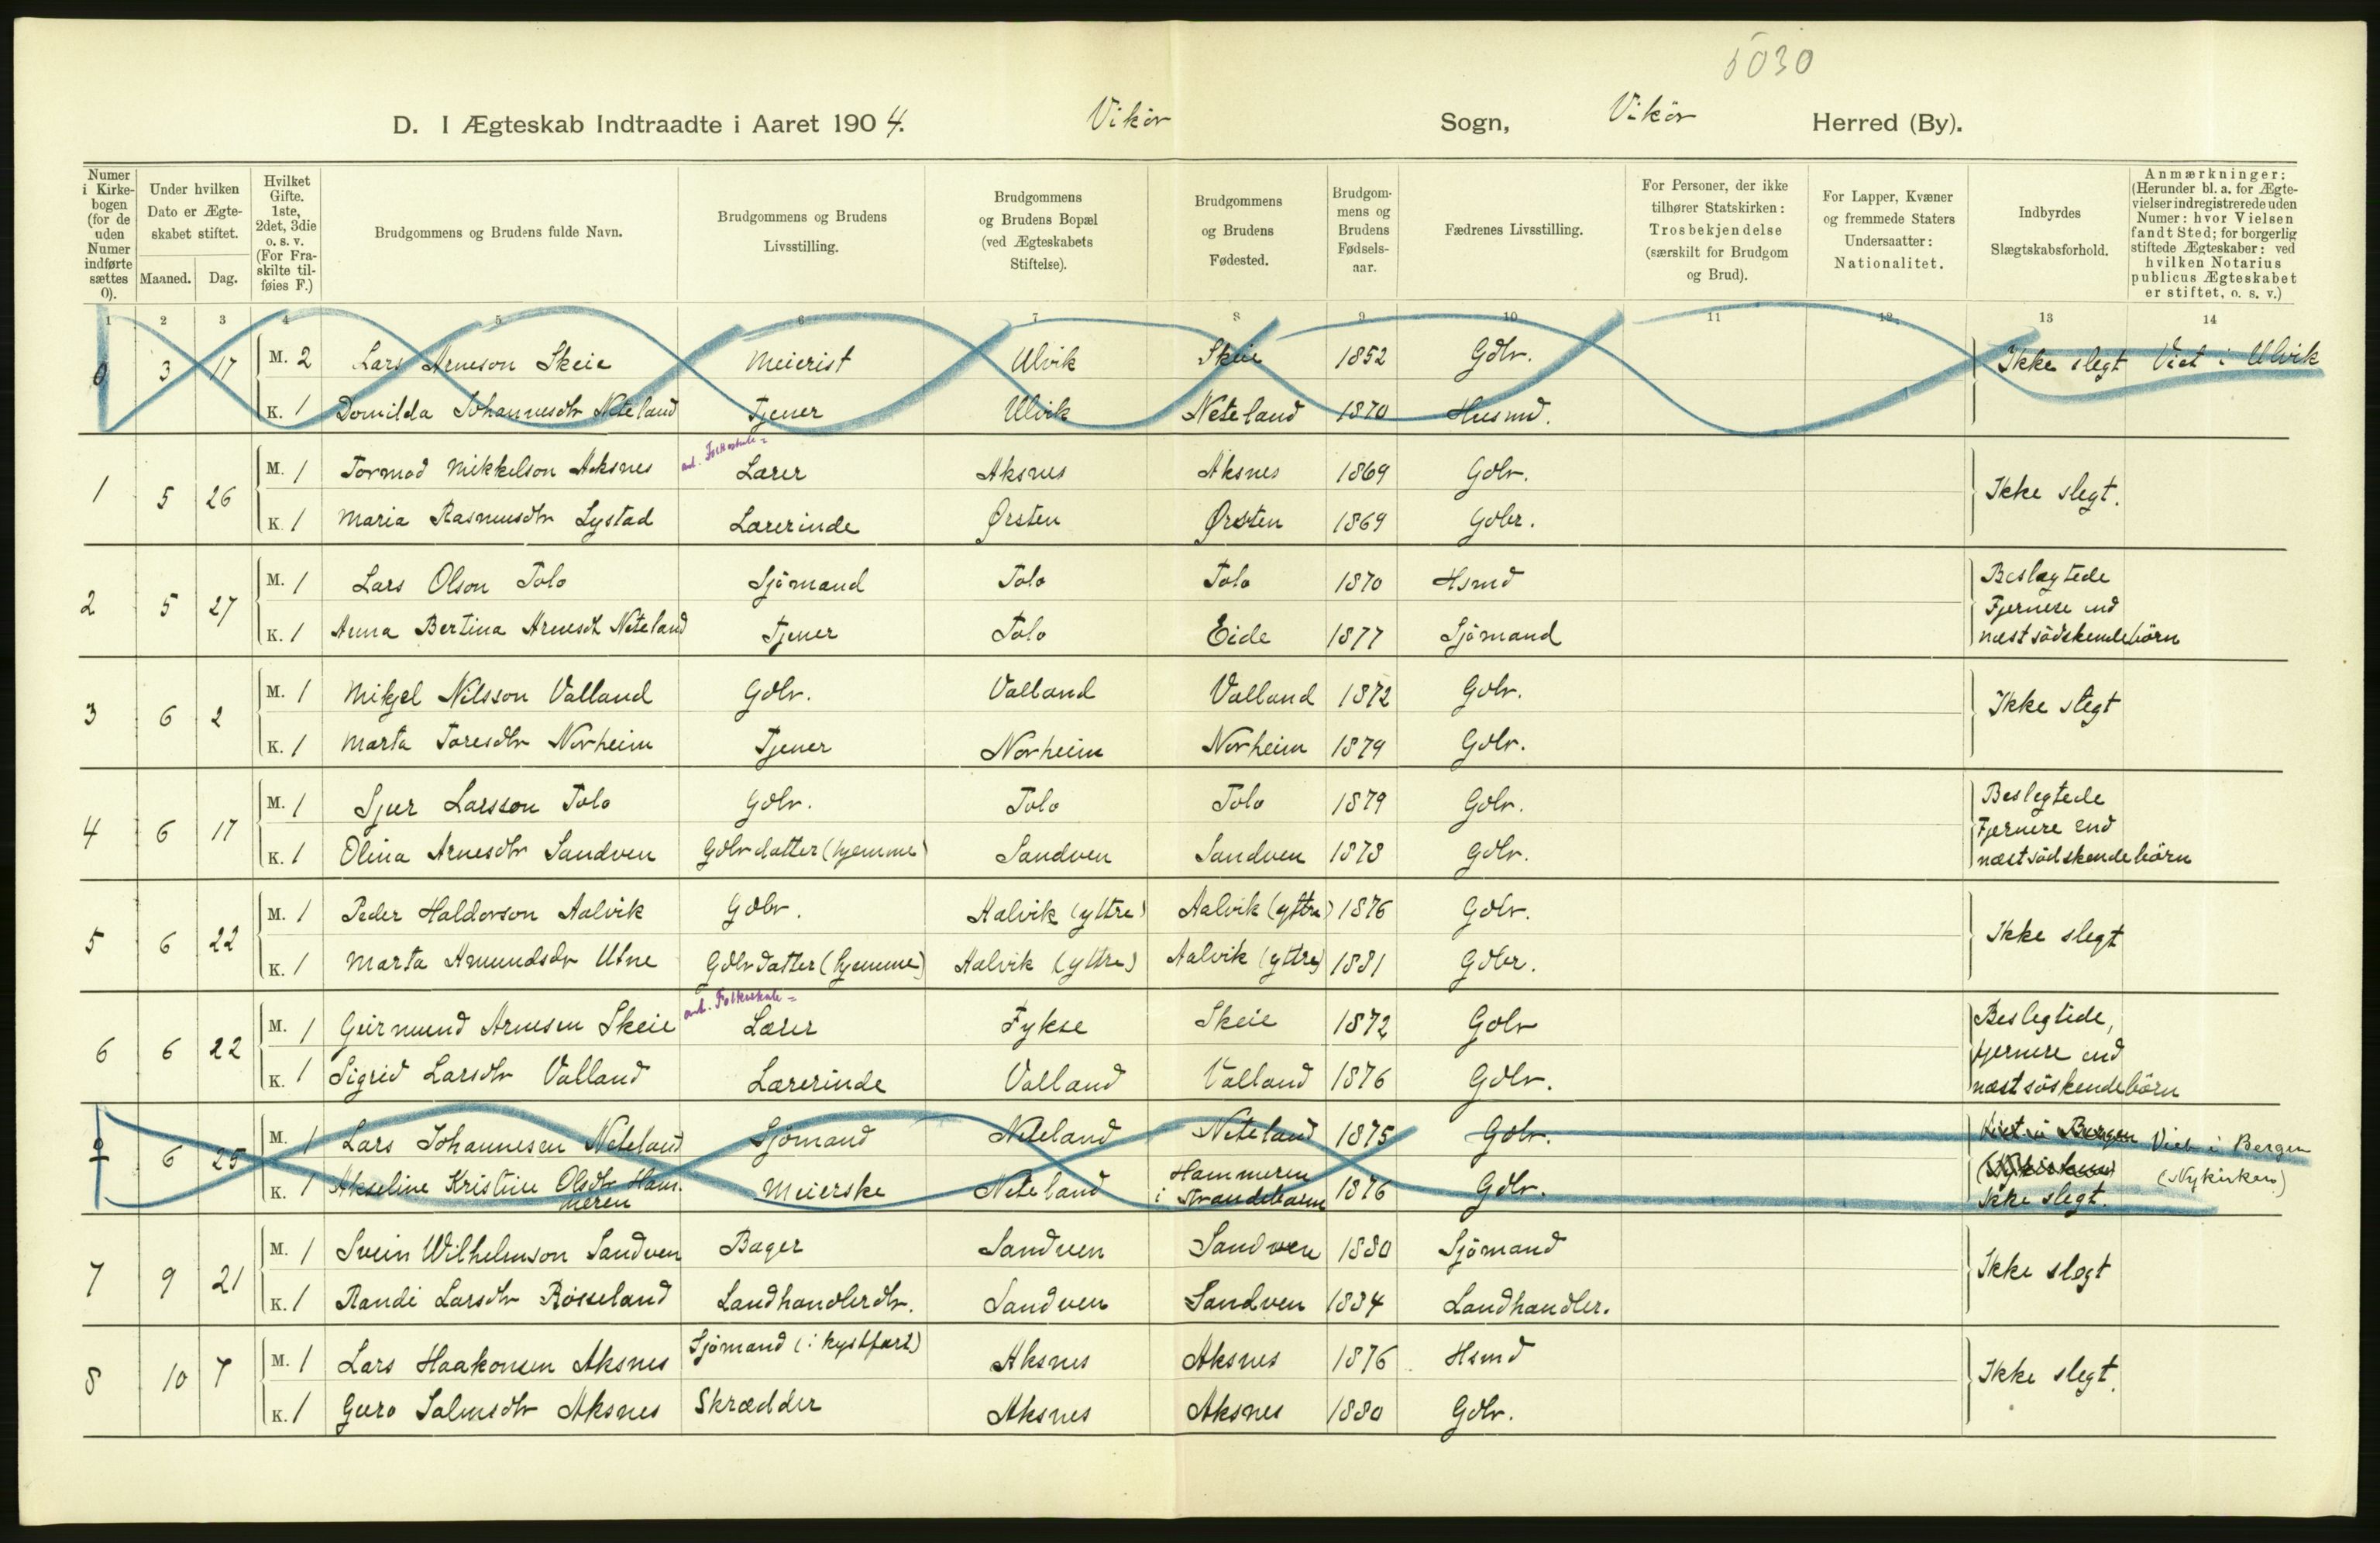 5030
D. I Ægteskab Indtraadte i Aaret 1904. Vikör Sogn, Vikör Herred (By).
Numer i Kirkebogen (for de uden Numer indførte sættes 0).
Under hvilken Dato er Ægteskabet stiftet.
Maaned. Dag.
Hvilket Gifte. 1ste, 2det, 3die o. s. v. (For Fraskilte tilføies F.)
Brudgommens og Brudens fulde Navn.
Brudgommens og Brudens Livsstilling.
Brudgommens og Brudens Bopæl (ved Ægteskabets Stiftelse).
Brudgommens og Brudens Fødested.
Brudgommens og Brudens Fødselsaar.
Fædrenes Livsstilling.
For Personer, der ikke tilhører Statskirken: Trosbekjendelse (særskilt for Brudgom og Brud).
For Lapper, Kvæner og fremmede Staters Undersaatter: Nationalitet.
Indbyrdes Slægtskabsforhold.
Anmærkninger: (Herunder bl. a. for Ægtevielser indregistrerede uden Numer: hvor Vielsen fandt Sted; for borgerlig stiftede Ægteskaber: ved hvilken Notarius publicus Ægteskabet er stiftet, o. s. v.)
1 2 3 4 5 6 7 8 9 10 11 12 13 14
0 3 17 M. 2 Lars Arneson Skeie Meierist Ulvik Skeie 1852 Gdbr. Ikke slegt Viet i Ulvik
K. 1 Domilda Johannesdtr Neteland Tjener Ulvik Neteland 1870 Husmd.
1 5 26 M. 1 Tormod Mikkelson Aksnes Lærer Aksnes Aksnes 1869 Gdbr. Ikke slegt.
K. 1 Maria Rasmusdtr Lystad Lærerinde Ørsten Ørsten 1869 Gdbr.
2 5 27 M. 1 Lars Olson Tolo Sjömand Tolo Tolo 1870 Hsmd Beslægtede
Fjernere end
næstsödskendebörn
K. 1 Anna Bertina Arnesdt Neteland Tjener Tolo Eide 1877 Sjömand
3 6 2 M. 1 Mikjel Nilsson Valland Gdbr. Valland Valland 1872 Gdbr. Ikke slegt
K. 1 Marta Toresdtr Norheim Tjener Norheim Norheim 1879 Gdbr.
4 6 17 M. 1 Sjur Larsson Tolo Gdbr. Tolo Tolo 1879 Gdbr. Beslegtede
Fjernere end
næstsödskendebörn
K. 1 Olina Arnesdtr Sandven Gdbrdatter (hjemme) Sandven Sandven 1878 Gdbr.
5 6 22 M. 1 Peder Haldorson Aalvik Gdbr. Aalvik (yttre) Aalvik (yttre) 1876 Gdbr. Ikke slegt
K. 1 Marta Amundsdr Utne Gdbrdatter (hjemme) Aalvik (yttre) Aalvik (yttre) 1881 Gdbr.
6 6 22 M. 1 Geirmund Arnesen Skeie Lærer Fykse Skeie 1872 Gdbr Beslegtede,
fjernere end
næstsöskendebörn
K. 1 Sigrid Larsdtr Valland Lærerinde Valland Valland 1876 Gdbr.
6 25 M. 1 Lars Johannesen Neteland Sjömand Neteland Neteland 1875 Gdbr. Viet i Bergen Viet i Bergen
(Nykirken) (Nykirken)
Ikke slegt.
K. 1 Akseline Kristine Olsdtr Ham-
meren Meierske Neteland Hammeren
i Strandebarm 1876 Gdbr.
7 9 21 M. 1 Svein Wilhelmson Sandven Bager Sandven Sandven 1880 Sjömand Ikke slegt
K. 1 Randi Larsdtr Rösseland Landhandlerdtr. Sandven Sandven 1884 Landhandler.
8 10 7 M. 1 Lars Haakonsen Aksnes Sjömand (i kystfart) Aksnes Aksnes 1876 Hsmd Ikke slegt.
K. 1 Guro Salmsdtr Aksnes Skrædder Aksnes Aksnes 1880 Gdbr.